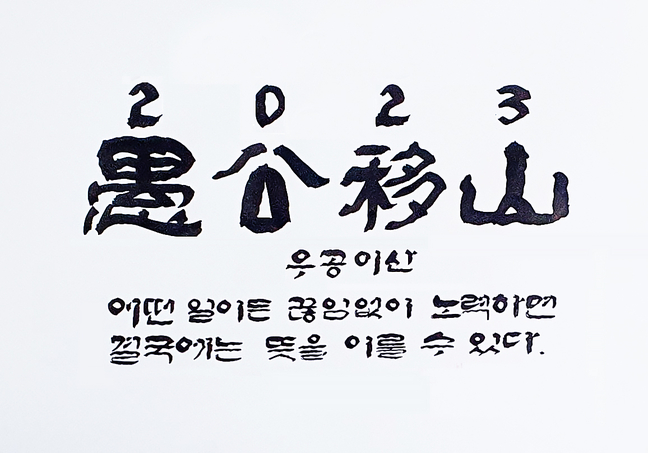 2 0 2 3
愚公移山
우공이산
어떤 일이든 끊임없이 노력하면
결국에는 뜻을 이룰 수 있다.